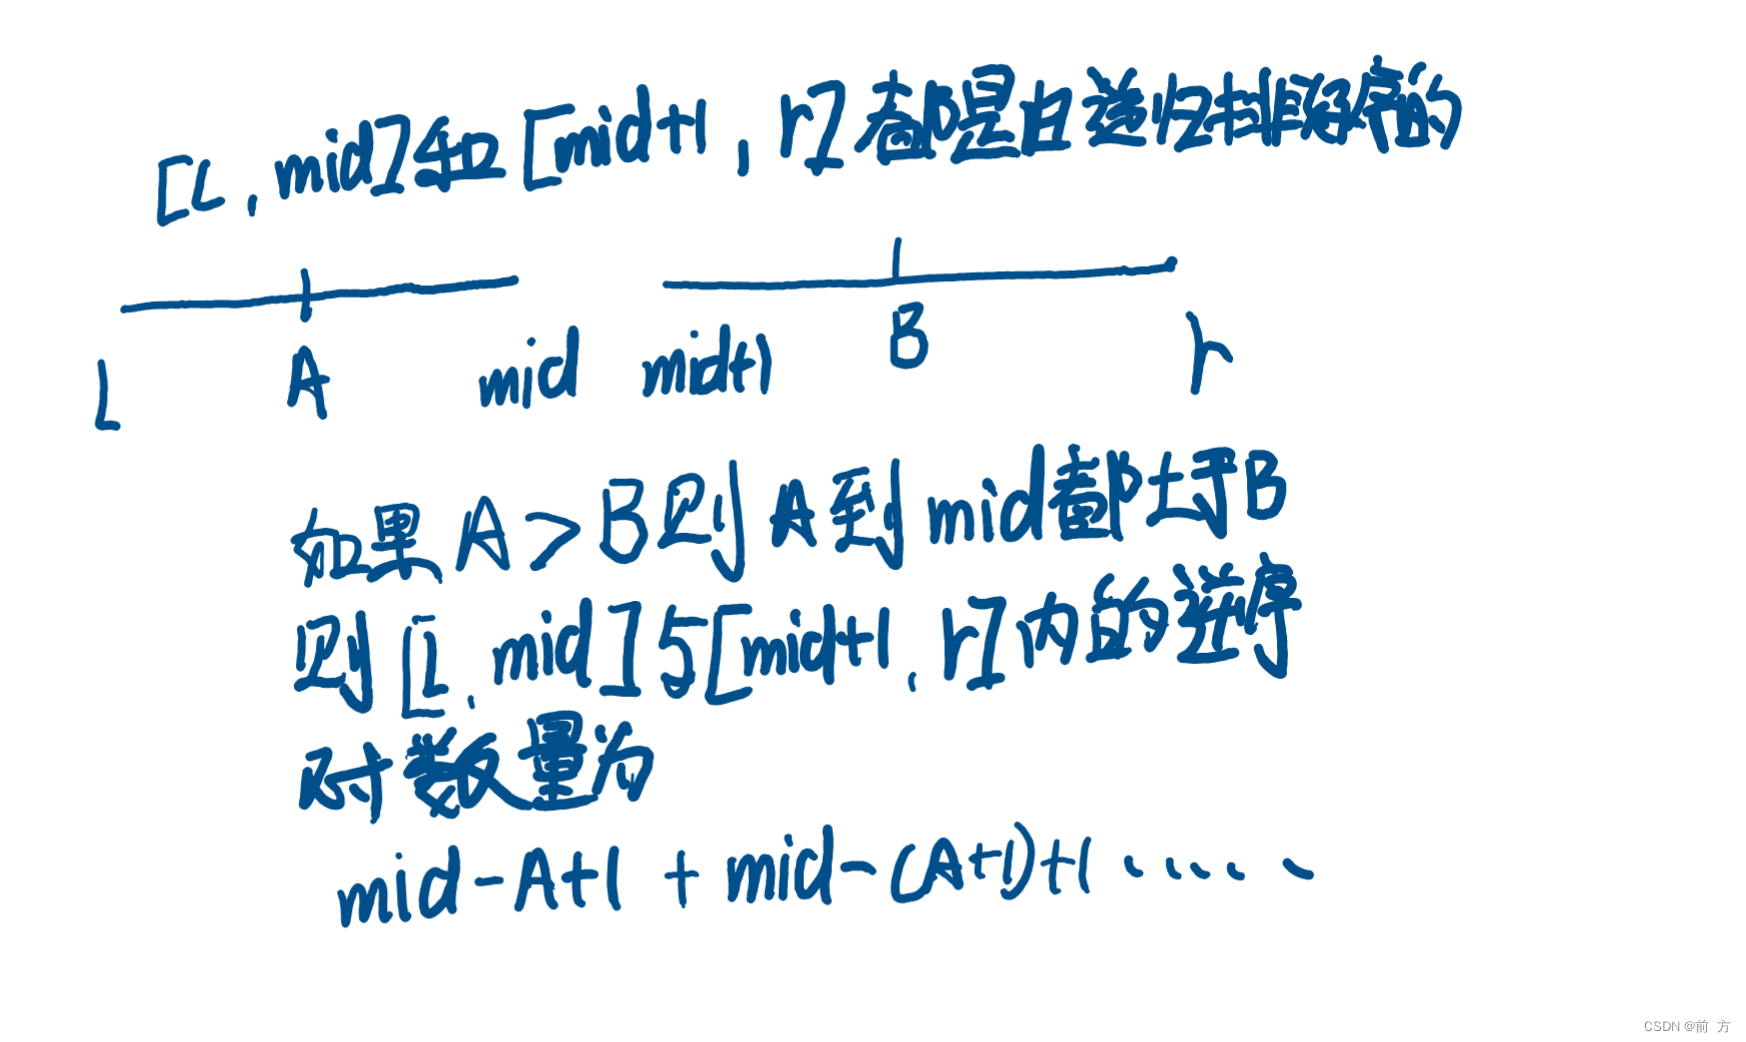 [L, mid]和[mid+1, r]都是由递归排好序的
L A mid mid+1 B r
如果 A > B 则 A 到 mid都大于B
则 [L, mid] 与[mid+1, r]内的逆序
对数量为
mid-A+1 + mid-(A+1)+1 ······
CSDN @前 方